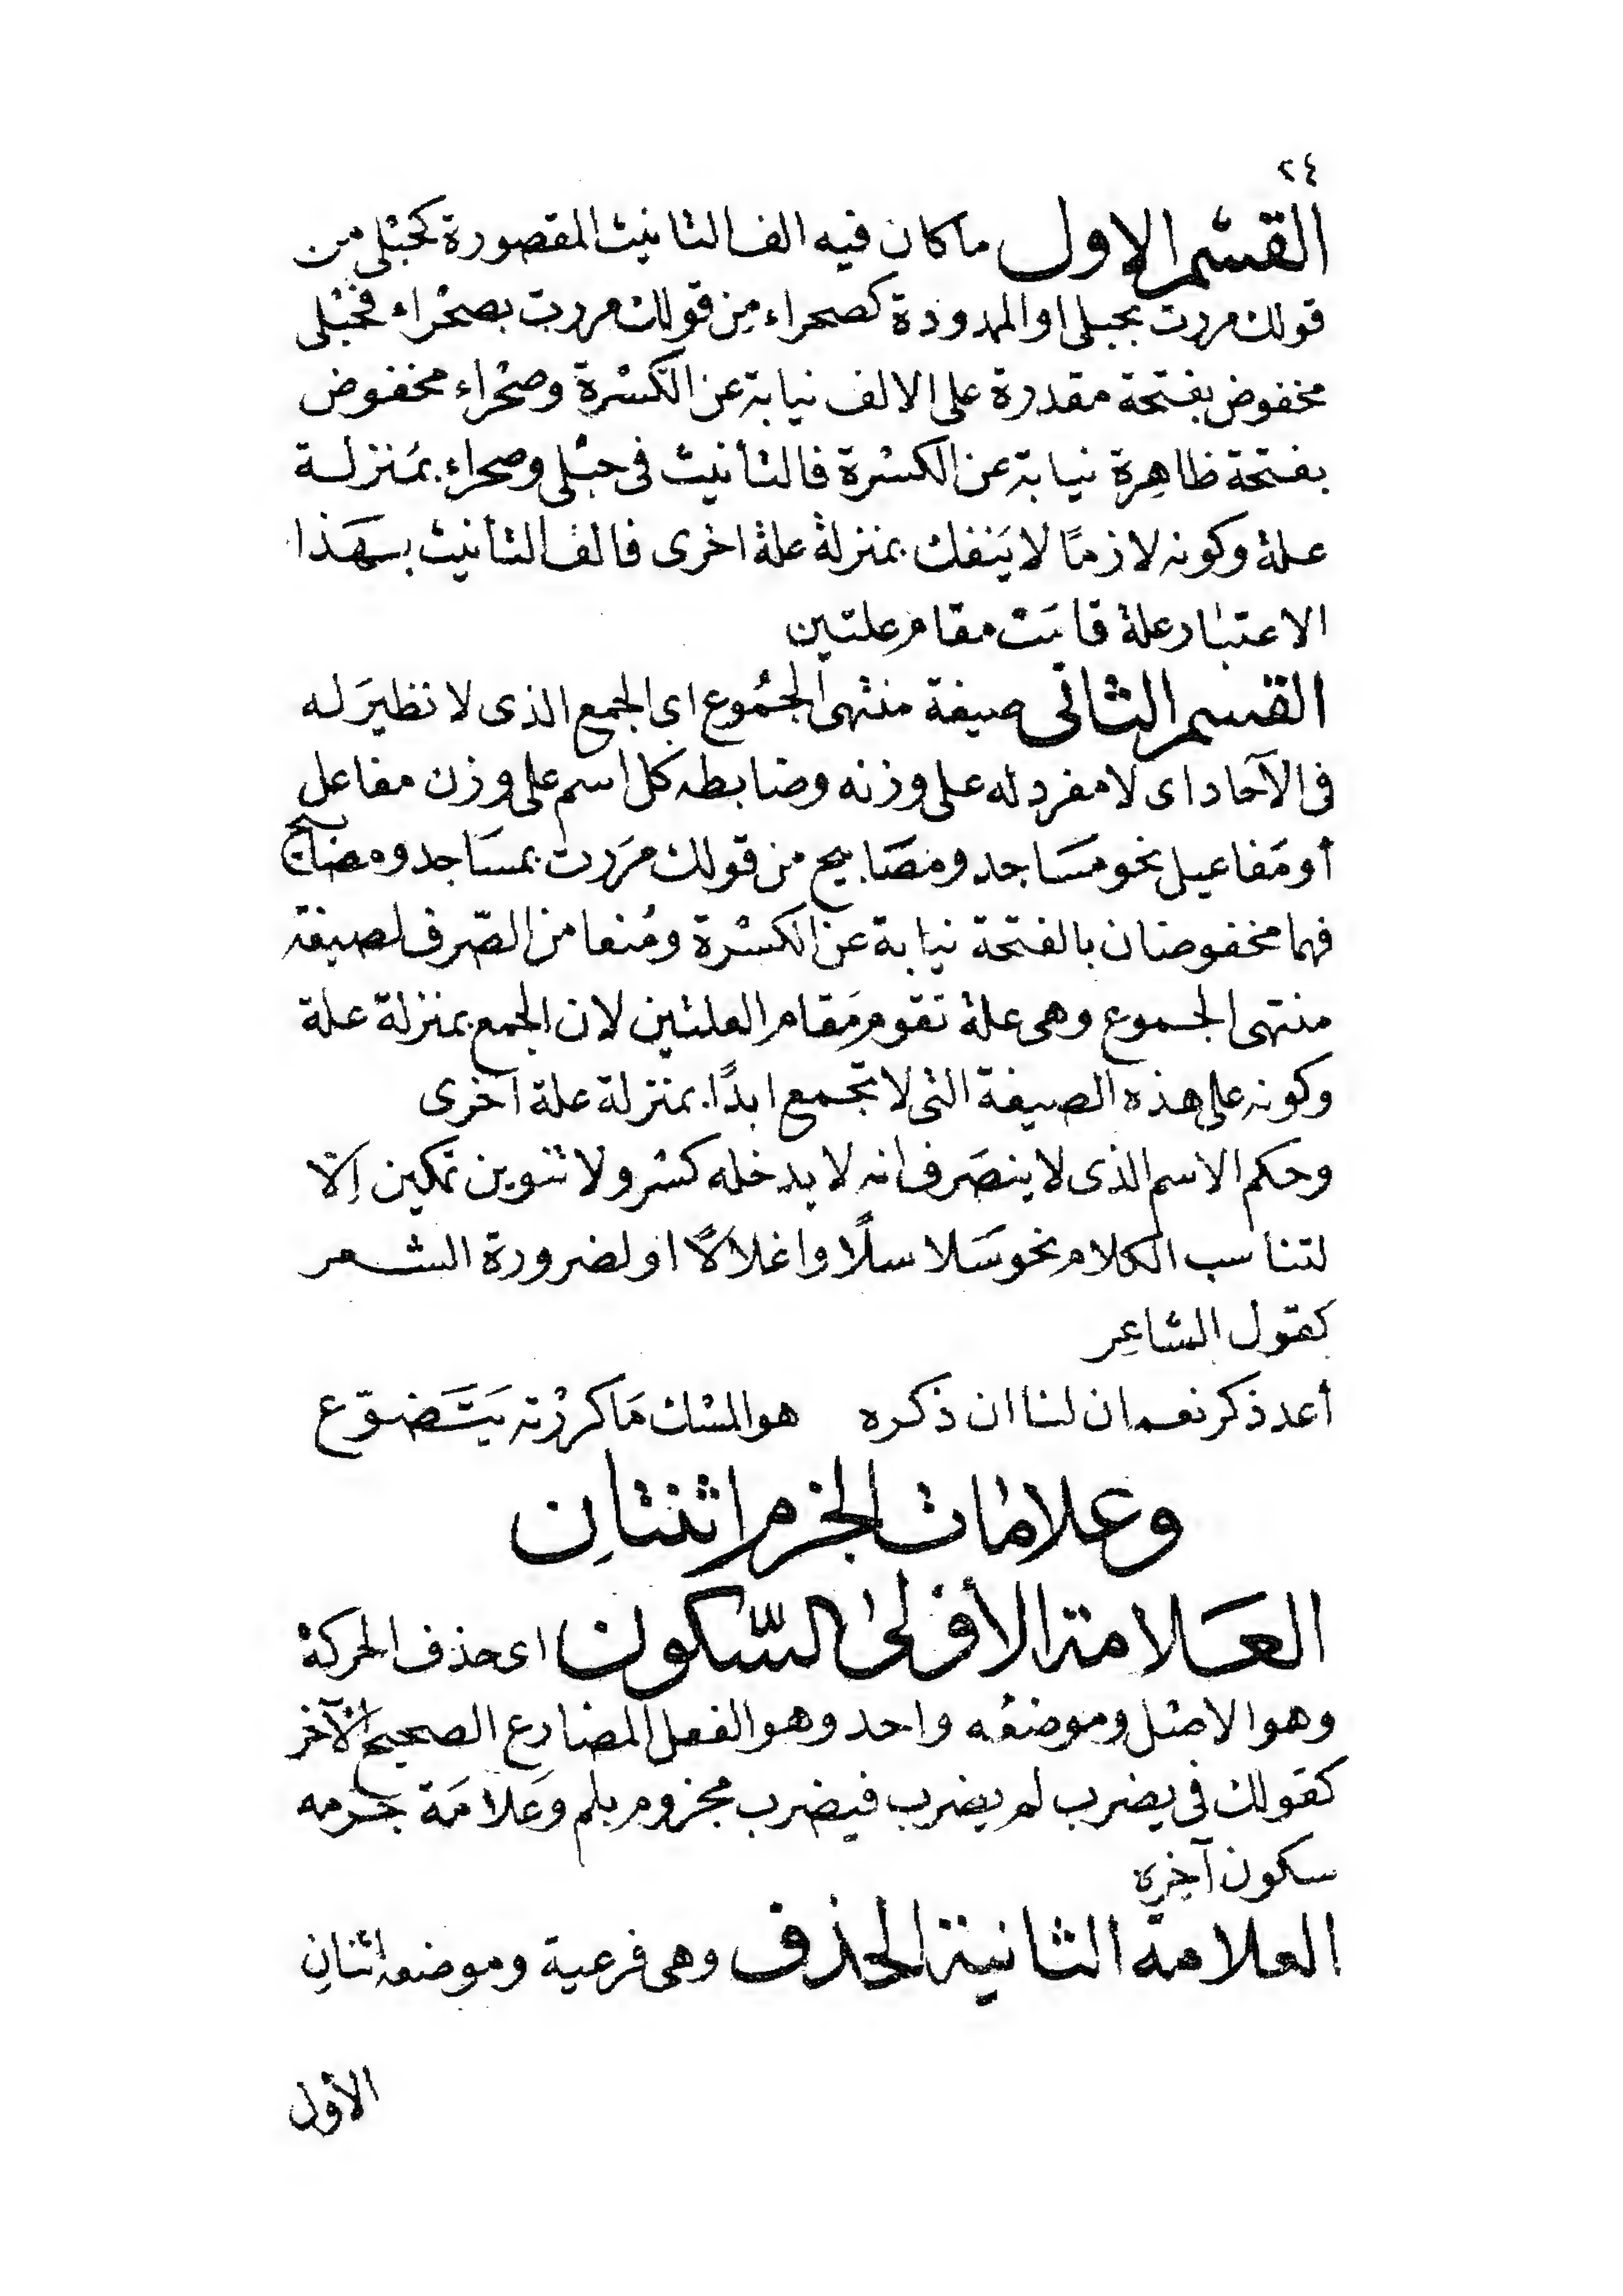 ٢٤
القسم الاول ما كان فيه الف التانيث المقصورة كحبلى من
قولك مررت بحبلى او الممدودة كصحراء من قولك مررت بصحراء فحبلى
مخفوض بفتحة مقدرة على الالف نيابة عن الكسرة وصحراء مخفوض
بفتحة ظاهرة نيابة عن الكسرة فالتأنيث فى حبلى وصحراء بمنزلة
علة وكونه لازمًا لا ينفك بمنزلة علة اخرى فالف التأنيث بهذا
الاعتبار علة قامت مقام علتين
القسم الثانى صيغة منتهى الجموع اى الجمع الذى لا نظير له
فى الآحاد اى لا مفرد له على وزنه وضابطه كل اسم على وزن مفاعل
أو مفاعيل نحو مساجد ومصابيح من قولك مررت بمساجد ومصابيح
فهما مخفوضان بالفتحة نيابة عن الكسرة ومُنعا من الصّرف لصيغة
منتهى الجموع وهى علة تقوم مقام العلتين لان الجمع بمنزلة علة
وكونه على هذه الصيغة التى لا تجمع ابدًا بمنزلة علة اخرى
وحكم الاسم الذى لا ينصرف انه لا يدخله كسر ولا تنوين تمكين إلّا
لتناسب الكلام نحو سَلاسلًا واغلالًا او لضرورة الشعر
كقول الشاعِر
أعد ذكر نعمان لنا ان ذكره هو المسْك مَا كررْته يَتَضوّع
وعلامات الجزم اثنتان
العَلامة الأولى السّكون اى حذف الحركة
وهو الاصل وموضعُه واحد وهو الفعل المضارع الصحيح الآخر
كقولك فى يضرب لم يضرب فيضرب مجزوم بلم وعَلامَة جزمه
سكون آخِره
العلامة الثانية الحذف وهى فرعية وموضعه اثنان
الأول